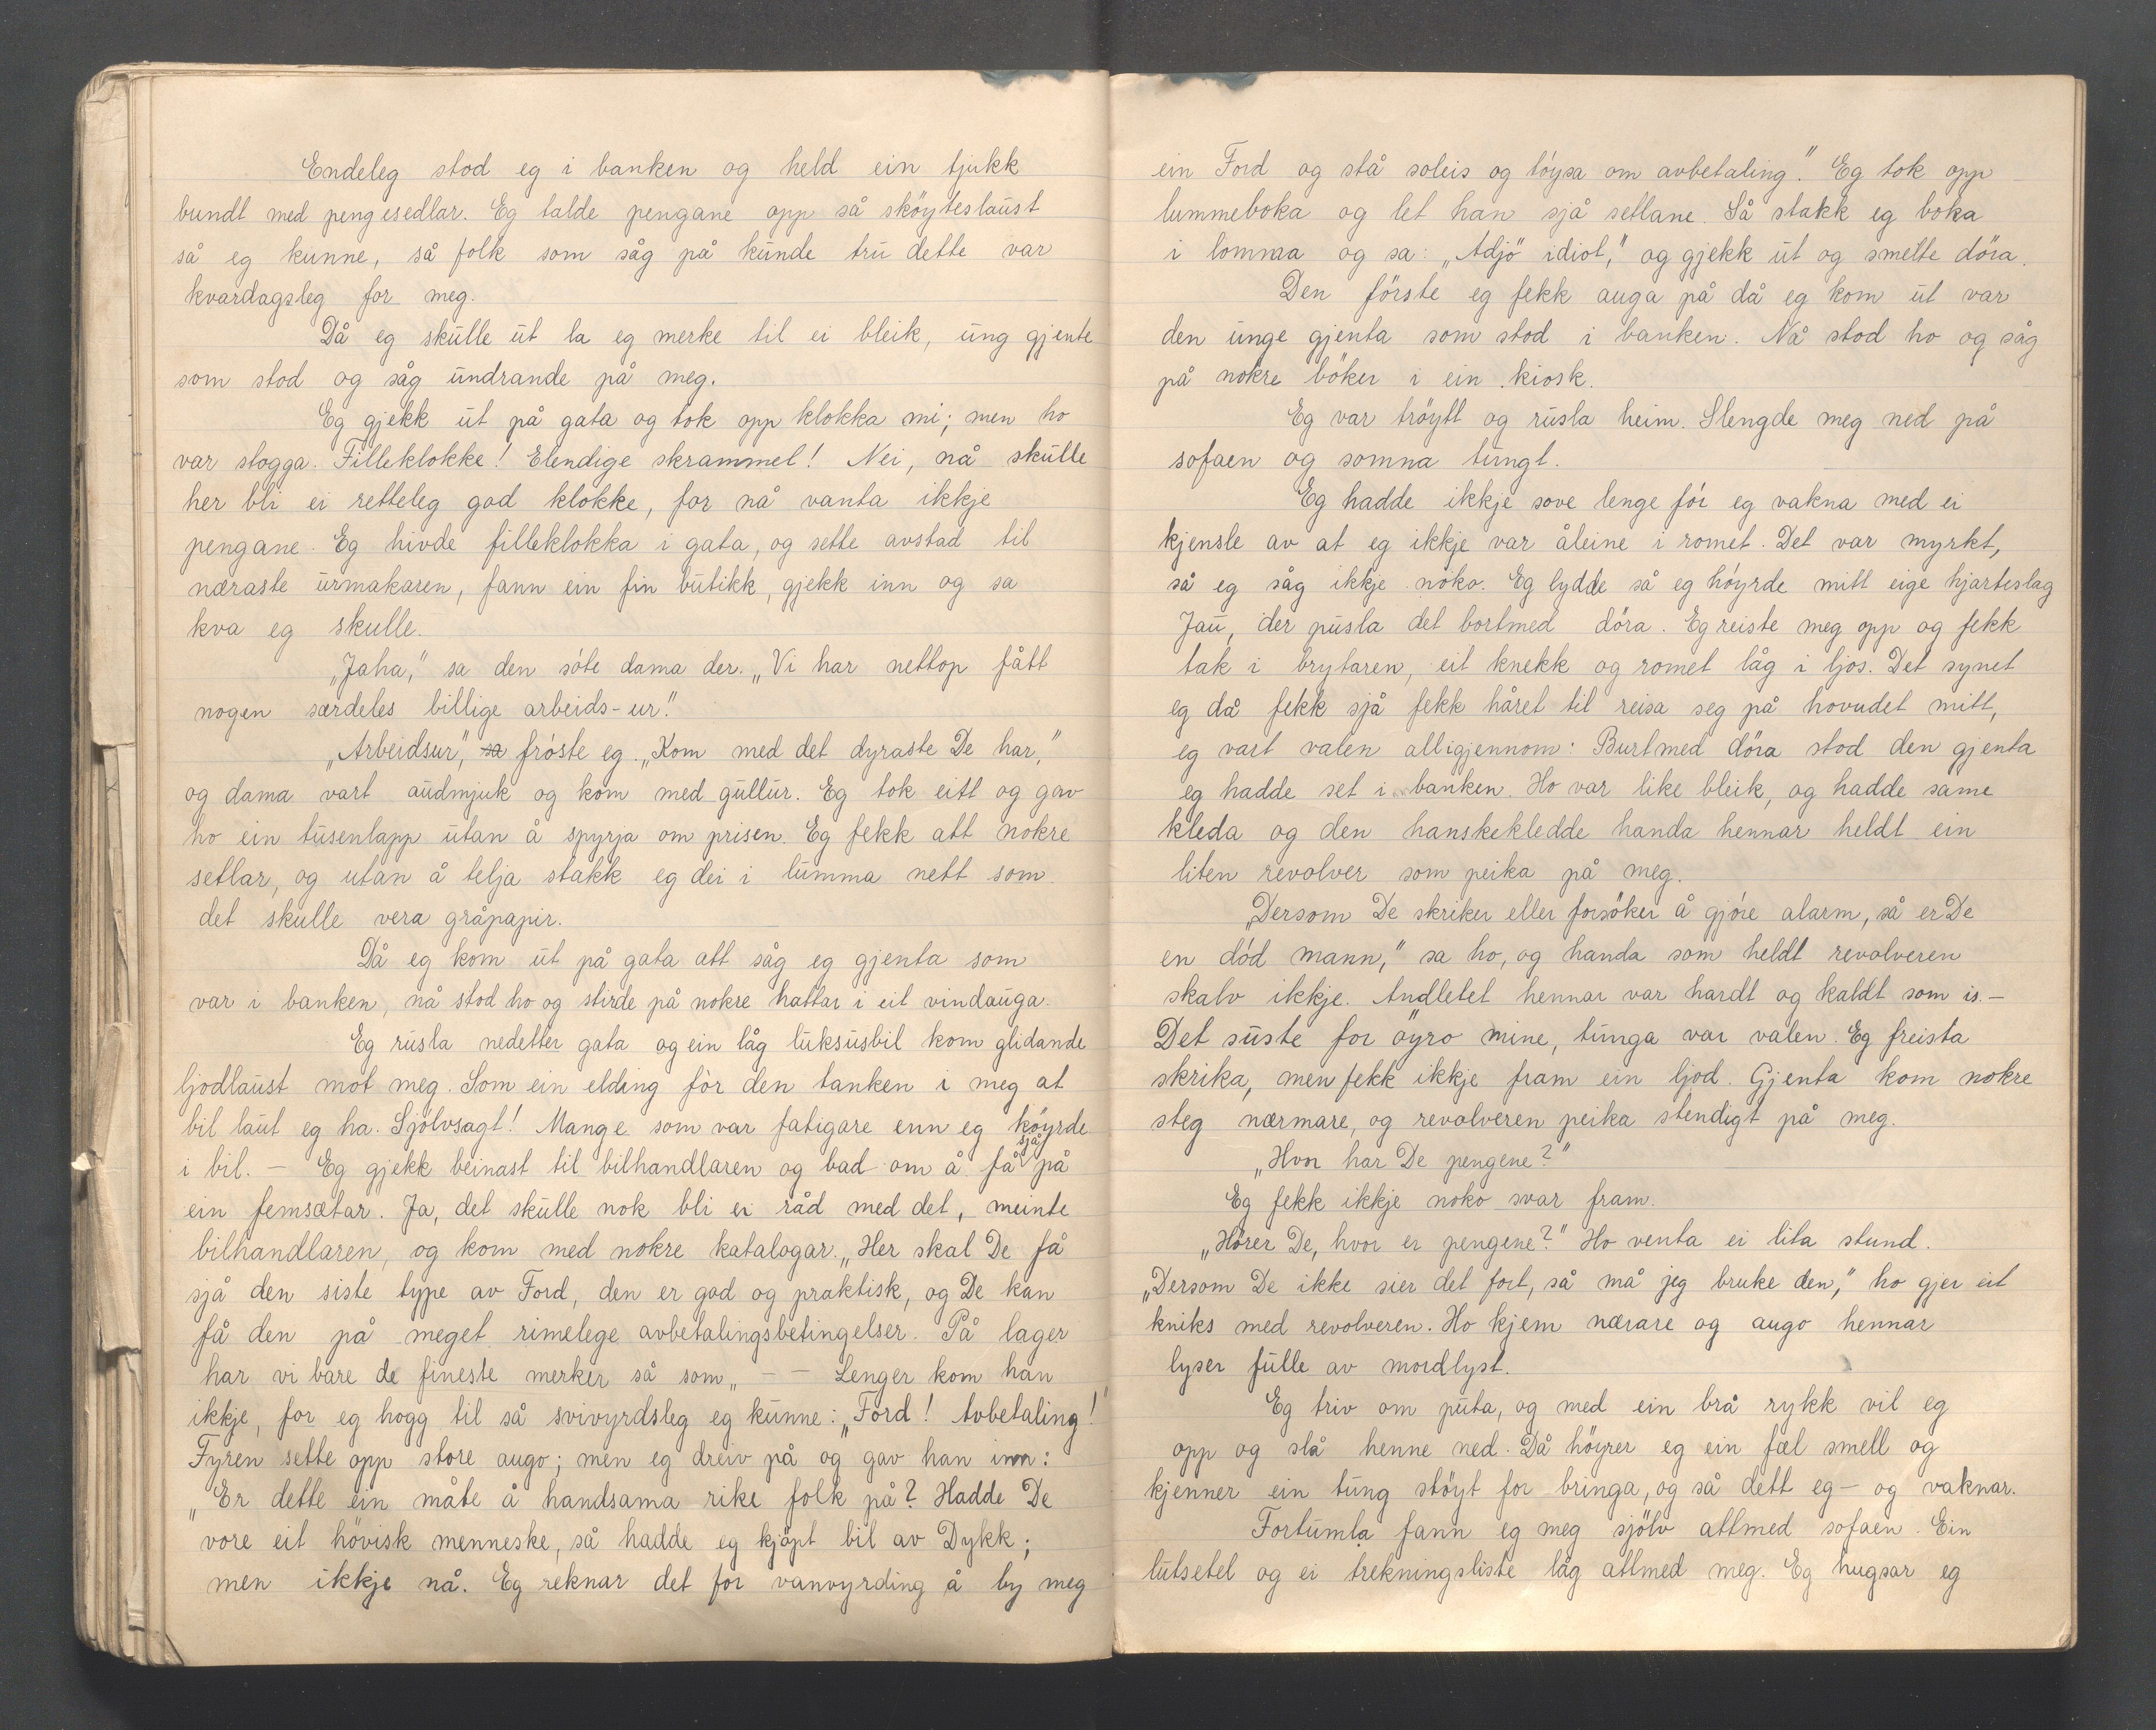 Endeleg stod eg i banken og held ein tjukk
bundt med pengesedlar. Eg talde pengane opp så sköyteslaust
så eg kunne, så folk som såg på kunde tru dette var
kvardagsleg for meg.
Då eg skulle ut la eg merke til ei bleik, ung gjente
som stod og såg undrande på meg.
Eg gjekk ut på gata og tok opp klokka mi; men ho
var stogga. Filleklokke! Elendige skrammel! Nei, nå skulle
her bli ei retteleg god klokke, for nå vanta ikkje
pengane. Eg hivde filleklokka i gata, og sette avstad til
næraste urmakaren, fann ein fin butikk, gjekk inn og sa
kva eg skulle.
„Jaha," sa den söte dama der. „Vi har nettop fått
nogen særdeles billige arbeids-ur."
„Arbeidsur", sa fröste eg. „Kom med det dyraste De har,"
og dama vart audmjuk og kom med gullur. Eg tok eitt og gav
ho ein tusenlapp utan å spyrja om prisen. Eg fekk att nokre
setlar, og utan å telja stakk eg dei i lumma nett som
det skulle vera gråpapir.
Då eg kom ut på gata att såg eg gjenta som
var i banken, nå stod ho og stirde på nokre hattar i eit vindauga.
Eg rusla nedetter gata og ein låg luksusbil kom glidande
ljodlaust mot meg. Som ein elding fór den tanken i meg at
bil laut eg ha. Sjölvsagt! Mange som var fatigare enn eg köyrde
i bil. — Eg gjekk beinast til bilhandlaren og bad om å få sjå på
ein femsætar. Ja, det skulle nok bli ei råd med det, meinte
bilhandlaren, og kom med nokre katalogar. „Her skal De få
sjå den siste type av Ford, den er god og praktisk, og De kan
få den på meget rimelege avbetalingsbetingelser. På lager
har vi bare de fineste merker så som„ — — Lenger kom han
ikkje, for eg hogg til så svivyrdsleg eg kunne: „Ford! Avbetaling!"
Fyren sette opp store augo; men eg dreiv på og gav han inn:
„Er dette ein måte å handsama rike folk på? Hadde De
vore eit hövisk menneske, så hadde eg kjöpt bil av Dykk;
men ikkje nå. Eg reknar det for vanvyrding å by meg
ein Ford og stå soleis og töysa om avbetaling." Eg tok opp
lummeboka og let han sjå setlane. Så stakk eg boka
i lomma og sa: „Adjö idiot," og gjekk ut og smelte döra.
Den förste eg fekk auga på då eg kom ut var
den unge gjenta som stod i banken. Nå stod ho og såg
på nokre böker i ein kiosk.
Eg var tröytt og rusla heim. Slengde meg ned på
sofaen og somna tungt.
Eg hadde ikkje sove lenge för eg vakna med ei
kjensle av at eg ikkje var åleine i romet. Det var myrkt,
så eg såg ikkje noko. Eg lydde så eg höyrde mitt eige hjarteslag
Jau, der pusla det bortmed döra. Eg reiste meg opp og fekk
tak i brytaren, eit knekk og romet låg i ljos. Det synet
eg då fekk sjå fekk håret til reisa seg på hovudet mitt,
eg vart valen alligjennom: Burtmed döra stod den gjenta
eg hadde set i banken. Ho var like bleik, og hadde same
kleda og den hanskekledde handa hennar heldt ein
liten revolver som peika på meg.
„Dersom De skriker eller forsöker å gjöre alarm, så er De
en död mann," sa ho, og handa som heldt revolveren
skalv ikkje. Andletet hennar var hardt og kaldt som is. —
Det suste for öyro mine, tunga var valen. Eg freista
skrika, men fekk ikkje fram ein ljod. Gjenta kom nokre
steg nærmare, og revolveren peika stendigt på meg.
„Hvor har De pengene?"
Eg fekk ikkje noko svar fram.
„Hörer De, hvor er pengene?" Ho venta ei lita stund.
„Dersom De ikke sier det fort, så må jeg bruke den," ho gjer eit
kniks med revolveren. Ho kjem nærare og augo hennar
lyser fulle av mordlyst.
Eg triv om puta, og med ein brå rykk vil eg
opp og slå henne ned. Då höyrer eg ein fæl smell og
kjenner ein tung stöyt for bringa, og så dett eg — og vaknar.
Fortumla fann eg meg sjölv attmed sofaen. Ein
lutsetel og ei trekningsliste låg attmed meg. Eg hugsar eg